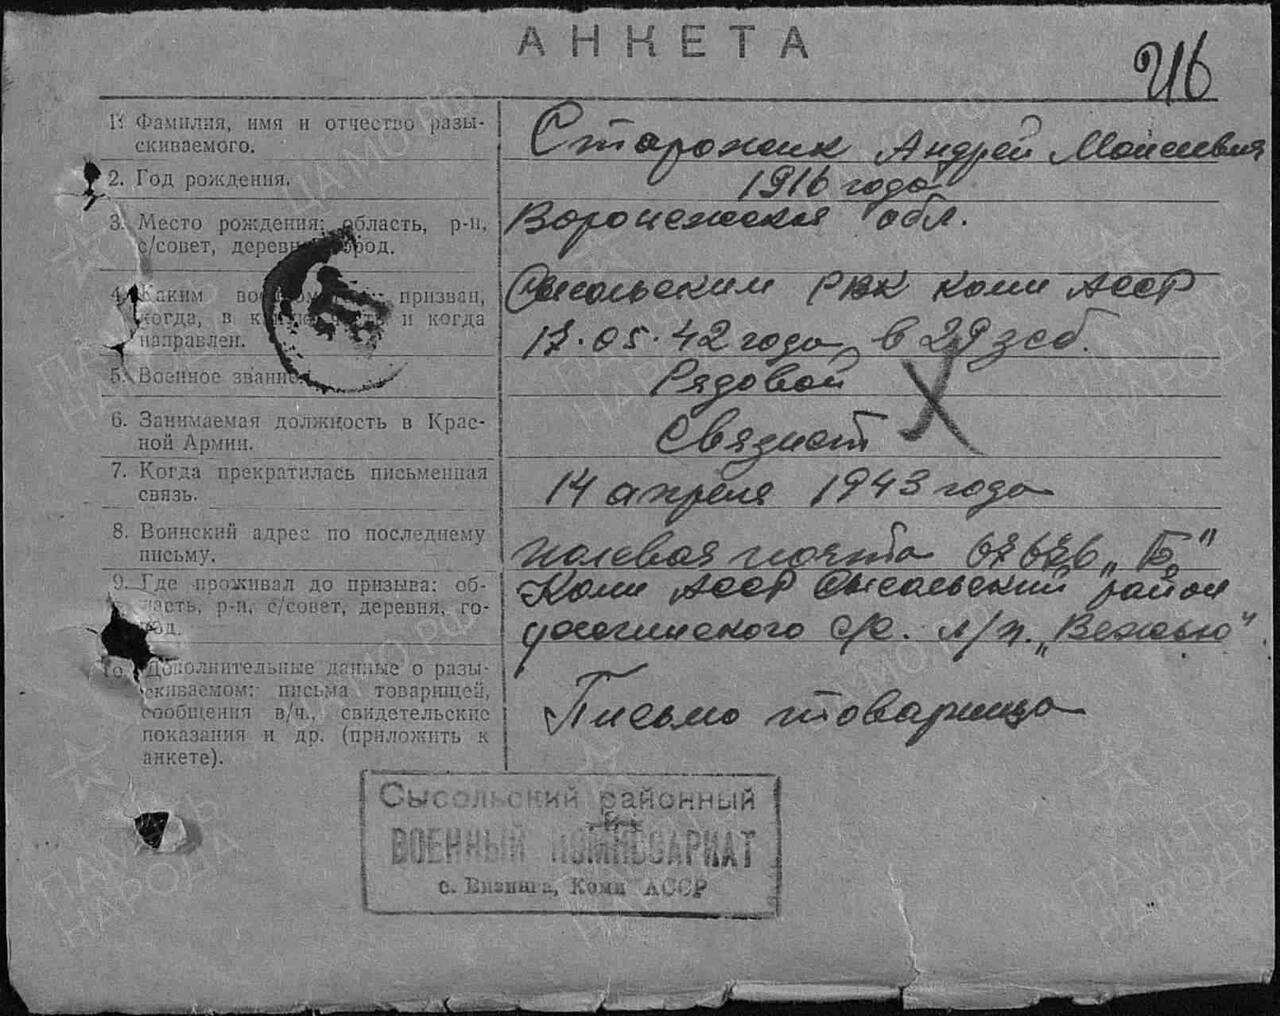 АНКЕТА
216
1. Фамилия, имя и отчество разы-
скиваемого.
Сторожик Андрей Моисеевич
2. Год рождения.
1916 года
3. Место рождения: область, р-н,
с/совет, деревня, город.
Воронежская обл.
4. Каким военкоматом призван,
когда, в какую часть и когда
направлен.
Сысольским РВК Коми АССР
17.05.42 года в 29 зсб.
5. Военное звание.
Рядовой
6. Занимаемая должность в Крас-
ной Армии.
Связист
7. Когда прекратилась письменная
связь.
14 апреля 1943 года
8. Воинский адрес по последнему
письму.
полевая почта „Б"
9. Где проживал до призыва: об-
ласть, р-н, с/совет, деревня, го-
род.
Коми АССР Сысольский район
с/с. л/п. „Вежью"
10. Дополнительные данные о разы-
скиваемом: письма товарищей,
сообщения в/ч., свидетельские
показания и др. (приложить к
анкете).
Письмо товарища
Сысольский районный
ВОЕННЫЙ КОМИССАРИАТ
с. Визинга, Коми АССР
ПАМЯТЬ
НАРОДА
ЦАМО.РФ